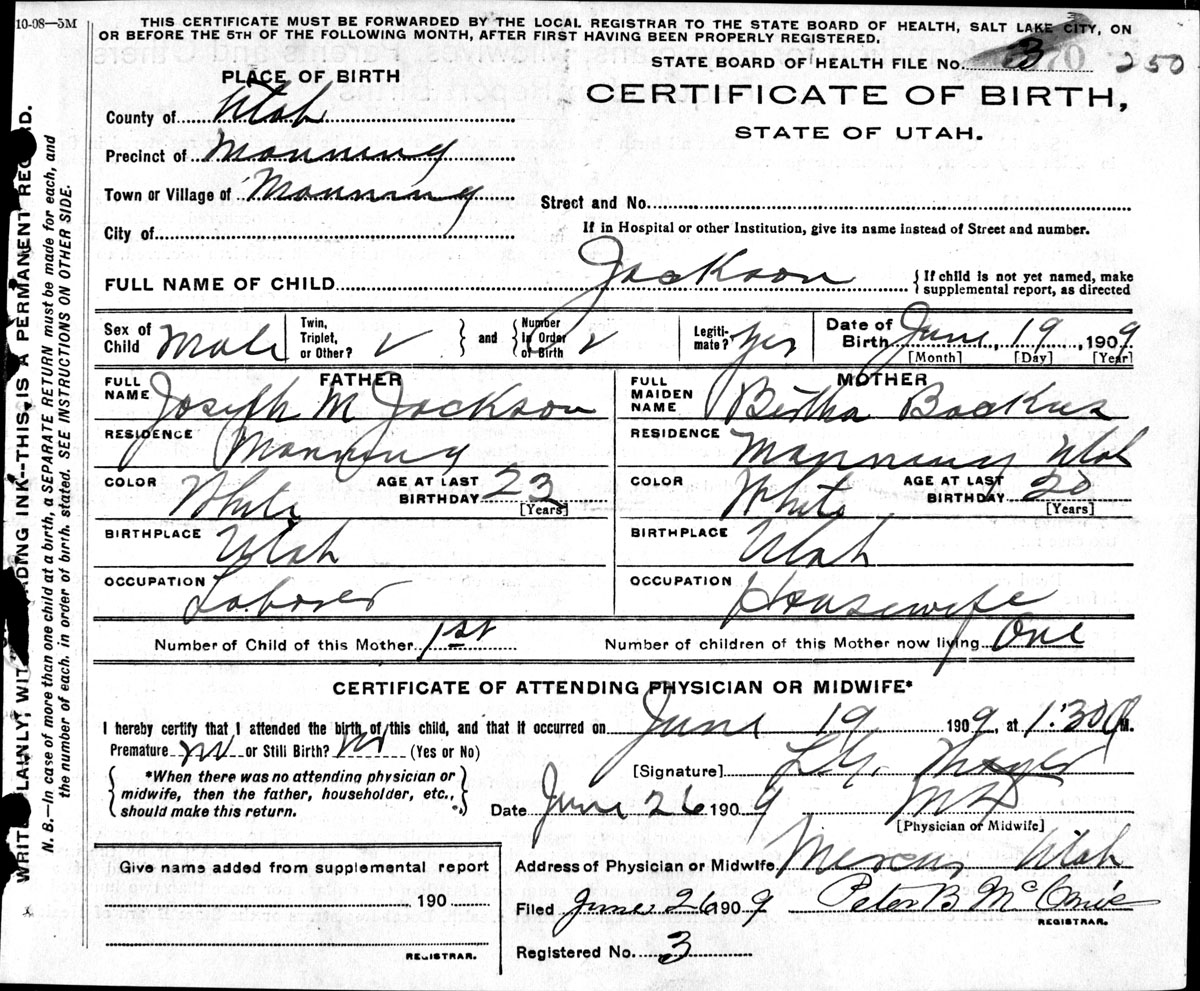 10-08—5M
THIS CERTIFICATE MUST BE FORWARDED BY THE LOCAL REGISTRAR TO THE STATE BOARD OF HEALTH, SALT LAKE CITY, ON
OR BEFORE THE 5TH OF THE FOLLOWING MONTH, AFTER FIRST HAVING BEEN PROPERLY REGISTERED.
STATE BOARD OF HEALTH FILE No. 3 70 250
PLACE OF BIRTH
CERTIFICATE OF BIRTH,
STATE OF UTAH.
County of Utah
Precinct of Manning
Town or Village of Manning
Street and No.
City of
If in Hospital or other Institution, give its name instead of Street and number.
FULL NAME OF CHILD Jackson { If child is not yet named, make
supplemental report, as directed
Sex of Child Male Twin, Triplet, or Other? and Number in Order of Birth Legitimate? Yes Date of Birth June, 19, 1909
[Month] [Day] [Year]
FATHER MOTHER
FULL NAME Joseph M Jackson FULL MAIDEN NAME Bertha Backus
RESIDENCE Manning RESIDENCE Manning Utah
COLOR White AGE AT LAST BIRTHDAY 23 [Years] COLOR White AGE AT LAST BIRTHDAY 20 [Years]
BIRTHPLACE Utah BIRTHPLACE Utah
OCCUPATION Laborer OCCUPATION Housewife
Number of Child of this Mother 1st Number of children of this Mother now living One
CERTIFICATE OF ATTENDING PHYSICIAN OR MIDWIFE*
I hereby certify that I attended the birth of this child, and that it occurred on June 19 1909, at 1:30 P M.
Premature no or Still Birth? no (Yes or No)
*When there was no attending physician or
midwife, then the father, householder, etc.,
should make this return.
[Signature]
Date June 26 1909 MD
[Physician or Midwife]
Address of Physician or Midwife Mercur Utah
Give name added from supplemental report
190
REGISTRAR.
Filed June 26 1909 Peter B
REGISTRAR.
Registered No. 3
WRITE PLAINLY, WITH FADING INK--THIS IS A PERMANENT RECORD.
N. B.—In case of more than one child at a birth, a SEPARATE RETURN must be made for each, and
the number of each, in order of birth, stated. SEE INSTRUCTIONS ON OTHER SIDE.